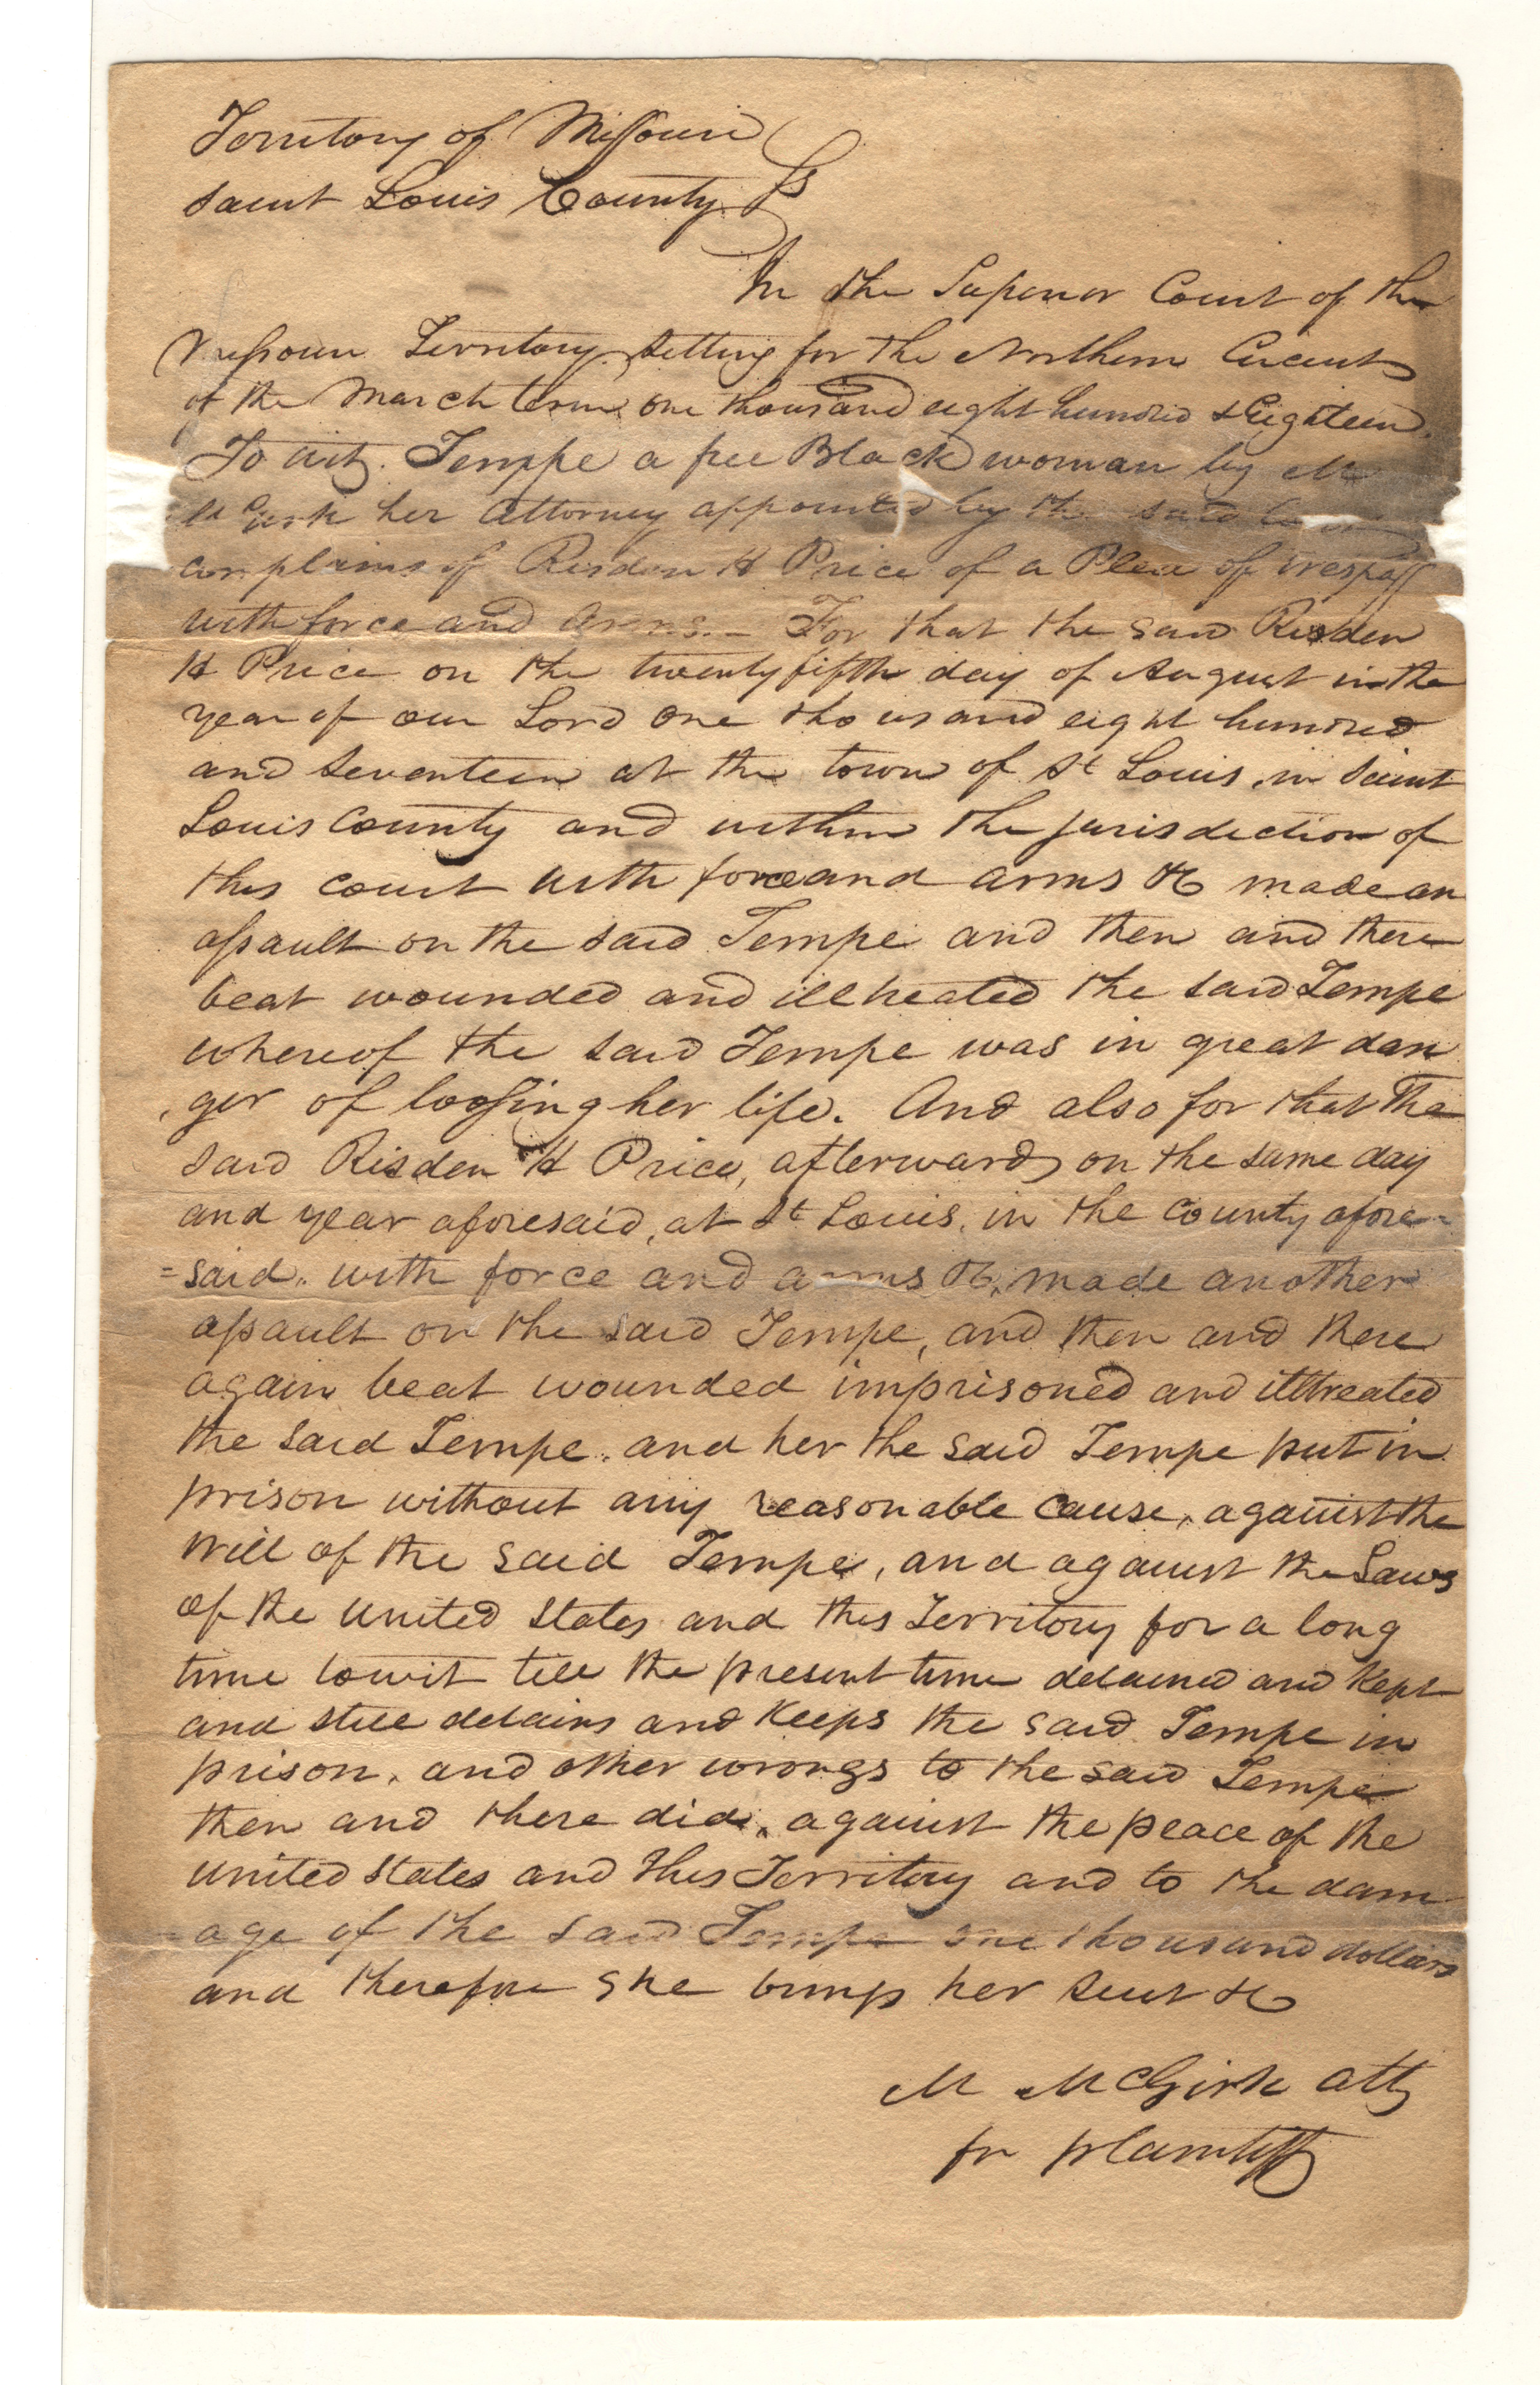 Territory of Missouri
Saint Louis County Ss
In the Superior Court of the
Missouri Territory sitting for the Northern Circuit
of the March term one thousand eight hundred & Eighteen.
To wit. Tempe a free Black woman by M
McGirk her Attorney appointed by the said
complains of Risdon H Price of a Plea of trespass
with force and Arms.— For that the said Risden
H Price on the twenty fifth day of August in the
year of our Lord one thousand eight hundred
and seventeen at the town of St Louis, in Saint
Louis County and within the jurisdiction of
this court with force and arms &c made an
assault on the said Tempe and then and there
beat wounded and illtreated the said Tempe
whereof the said Tempe was in great dan
ger of loosing her life. And also for that the
said Risden H Price, afterwards on the same day
and year aforesaid, at St Louis, in the County afore=
=said, with force and arms &c, made another
assault on the said Tempe, and then and there
again beat wounded imprisoned and illtreated
the said Tempe. and her the said Tempe put in
prison without any reasonable cause, against the
will of the said Tempe, and against the Laws
of the United States and this Territory for a long
time towit till the present time detained and kept
and still detains and keeps the said Tempe in
prison, and other wrongs to the said Tempe
then and there did, against the peace of the
United States and this Territory and to the dam
age of the said Tempe one thousand dollars
and therefore she brings her suit &c
M McGirk atty
for plaintiff